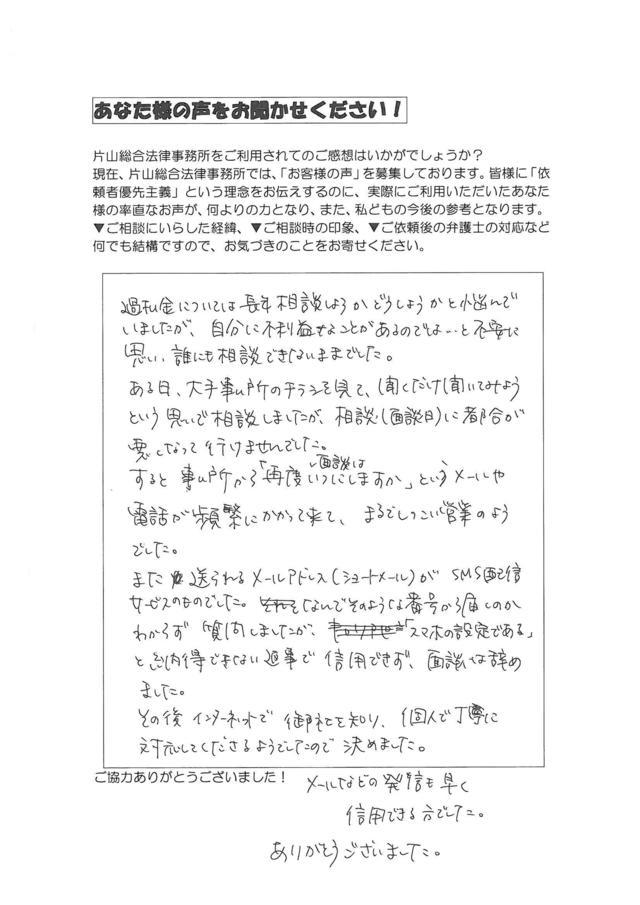 あなた様の声をお聞かせください！
片山総合法律事務所をご利用されてのご感想はいかがでしょうか？
現在、片山総合法律事務所では、「お客様の声」を募集しております。皆様に「依
頼者優先主義」という理念をお伝えするのに、実際にご利用いただいたあなた
様の率直なお声が、何よりの力となり、また、私どもの今後の参考となります。
▼ご相談にいらした経緯、▼ご相談時の印象、▼ご依頼後の弁護士の対応など
何でも結構ですので、お気づきのことをお寄せください。
過払金については長年相談しようかどうしようかと悩んで
いましたが、自分に不利益なことがあるのでは…と不安に
思い、誰にも相談できないままでした。
ある日、大手事ム所のチラシを見て、聞くだけ聞いてみよう
という思いで相談しましたが、相談（面談日）に都合が
悪くなって行けませんでした。
すると事ム所から「再度面談はいつにしますか」というメールや
電話が頻繁にかかって来て、まるでしつこい営業のよう
でした。
また送られるメールアドレス（ショートメール）が SMS配信
サービスのものでした。なんでそのような番号から届くのか
わからず質問しましたが、「スマホの設定である」
と納得できない返事で信用できず、面談は辞め
ました。
その後インターネットで御社を知り、個人で丁寧に
対応してくださるようでしたので決めました。
ご協力ありがとうございました！
メールなどの発信も早く
信用できる方でした。
ありがとうございました。